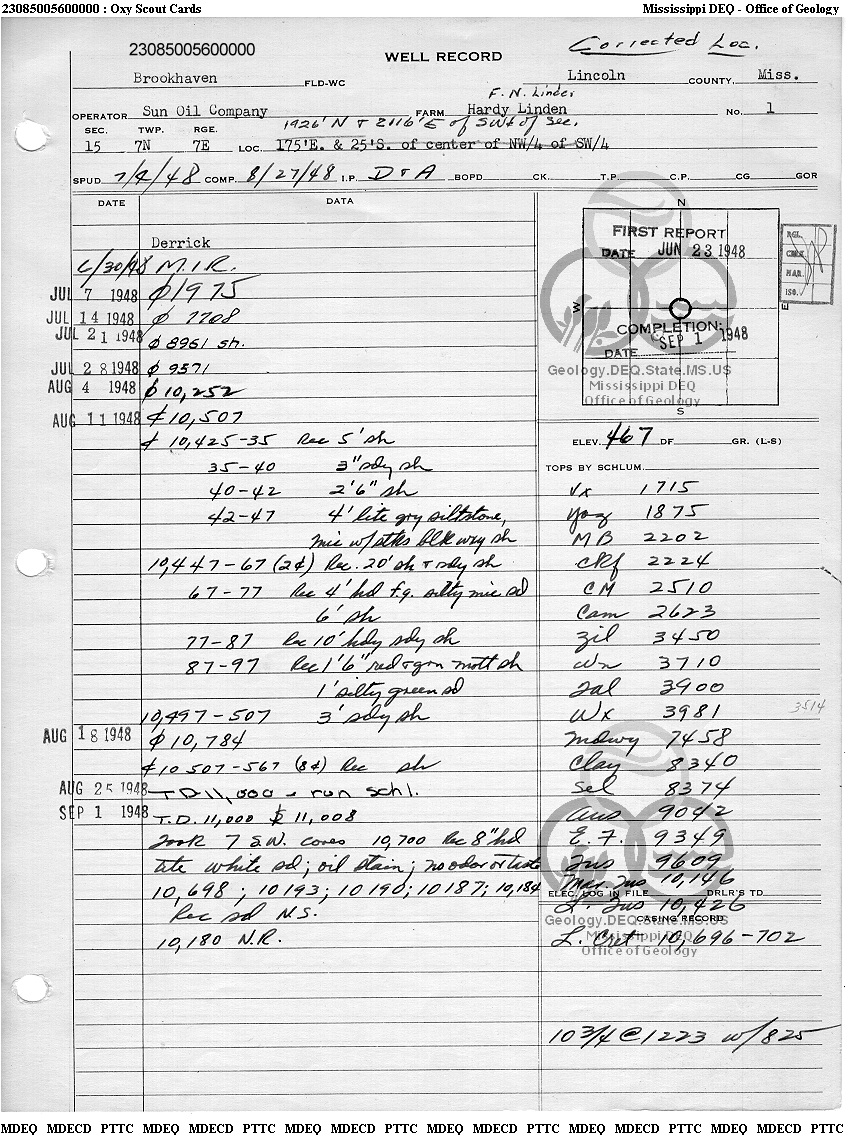 23085005600000 : Oxy Scout Cards
Mississippi DEQ - Office of Geology
23085005600000
WELL RECORD
Corrected Loc.
Brookhaven FLD-WC Lincoln COUNTY, Miss.
F. N. Linder
OPERATOR Sun Oil Company FARM Hardy Linden No. 1
1926' N & 2116' E of SW/4 of Sec.
SEC. TWP. RGE.
15 7N 7E LOC. 175'E. & 25'S. of center of NW/4 of SW/4
SPUD 7/2/48 COMP. 8/27/48 I.P. D & A BOPD CK. T.P. C.P. CG GOR
DATE DATA
Derrick
6/30/48 M.I.R.
JUL 7 1948 ϕ 1975
JUL 14 1948 ϕ 7708
JUL 21 1948 ϕ 8961 sh.
JUL 28 1948 ϕ 9571
AUG 4 1948 ϕ 10,252
AUG 11 1948 ¢ 10,507
¢ 10,425-35 Rec 5' sh
35-40 3" sdy sh
40-42 2'6" sh
42-47 4' lite gry siltstone,
mic w/stks blk wxy sh
10,447-67 (2¢) Rec. 20' sh & sdy sh
67-77 Rec 4' hd f.g. silty mic sd
6' sh
77-87 Rec 10' hdy sdy sh
87-97 Rec 1'6" red & grn mott sh
1' silty green sd
10,497-507 3' sdy sh
AUG 18 1948 ϕ 10,784
¢ 10507-567 (8¢) Rec sh
AUG 25 1948 TD 11,000 - run schl.
SEP 1 1948 T.D. 11,000 $ 11,008
Took 7 S.W. cores 10,700 Rec 8" hd
tite white sd; oil stain; no odor or taste
10,698; 10193; 10190; 10187; 10,184
Rec sd N.S.
10,180 N.R.
N
W
E
S
FIRST REPORT
DATE JUN 23 1948
COMPLETION:
SEP 1 1948
DATE
Geology.DEQ.State.MS.US
Mississippi DEQ
Office of Geology
RGL.
MAR.
ISO.
ELEV. 467 DF GR. (L-S)
TOPS BY SCHLUM.
Vx 1715
Yaz 1875
MB 2202
ckf 2224
CM 2510
Cam 2623
Zil 3450
Wn 3710
Tal 3900
Wx 3981
3514
mdwy 7458
Clay 8340
Sel 8374
Aus 9042
E. F. 9349
Tus 9609
Mar. Tus 10,146
ELEC. LOG IN FILE DRLR'S TD
L. Tus 10,426
CASING RECORD
Geology.DEQ.State.MS.US
Mississippi DEQ
Office of Geology
L. Cret 10,696-702
10 3/4 @ 1223 w/825
MDEQ MDECD PTTC MDEQ MDECD PTTC MDEQ MDECD PTTC MDEQ MDECD PTTC MDEQ MDECD PTTC MDEQ MDECD PTTC